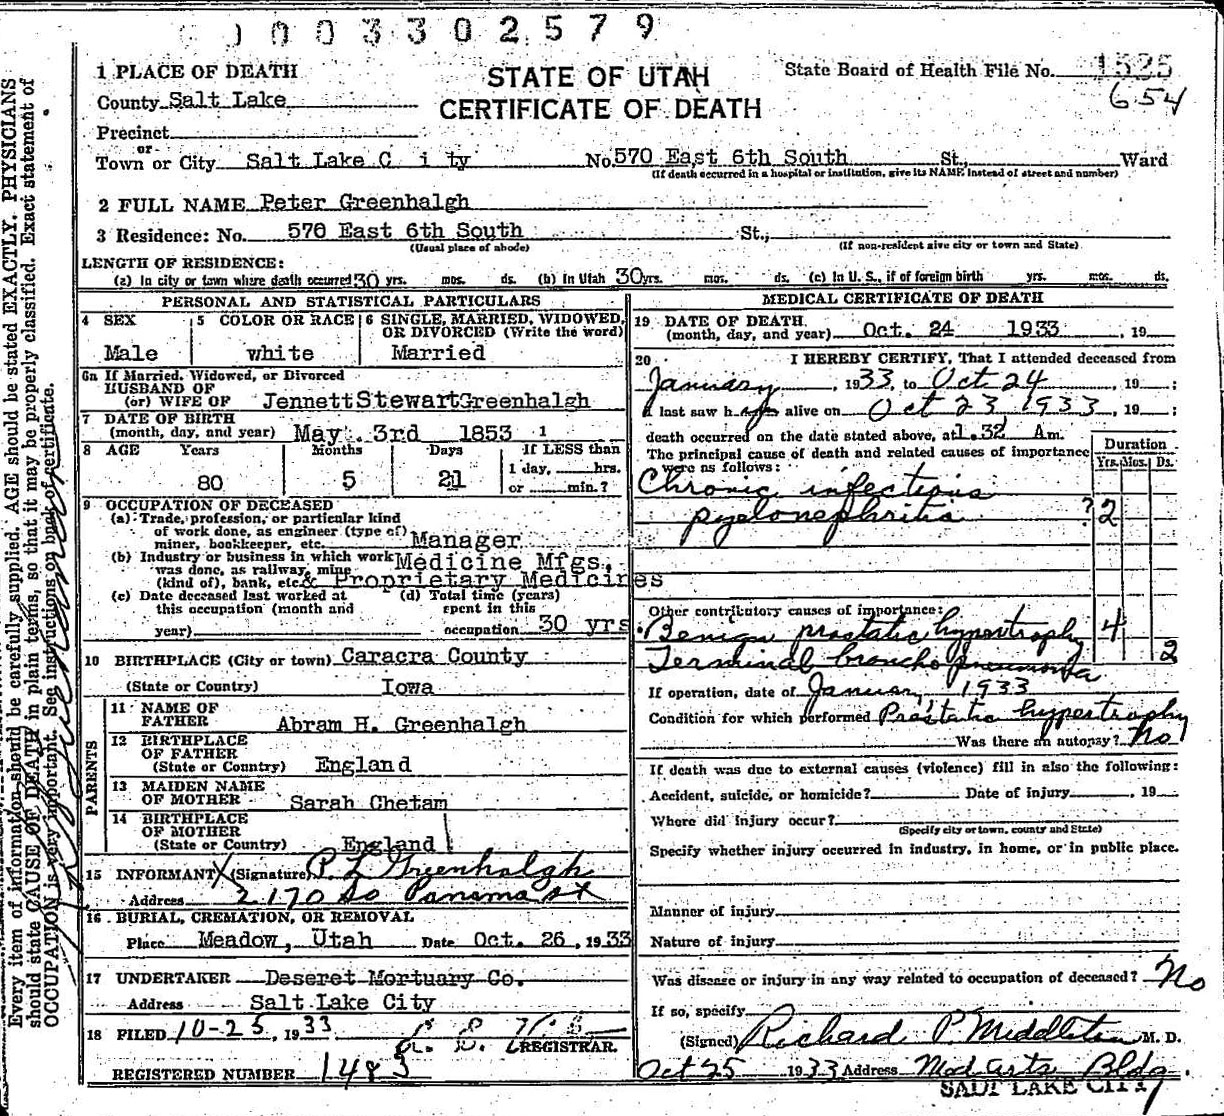 0003302579
1 PLACE OF DEATH
STATE OF UTAH
CERTIFICATE OF DEATH
State Board of Health File No. 1525
654
County Salt Lake
Precinct
or
Town or City Salt Lake C i ty No. 570 East 6th South St., Ward
(If death occurred in a hospital or institution, give its NAME instead of street and number)
2 FULL NAME Peter Greenhalgh
3 Residence: No. 570 East 6th South St.,
(Usual place of abode) (If non-resident give city or town and State)
LENGTH OF RESIDENCE:
(a) In city or town where death occurred 30 yrs. mos. ds. (b) In Utah 30 yrs. mos. ds. (c) In U. S., if of foreign birth yrs. mos. ds.
PERSONAL AND STATISTICAL PARTICULARS
4 SEX
Male
5 COLOR OR RACE
white
6 SINGLE, MARRIED, WIDOWED, OR DIVORCED (Write the word)
Married
6a If Married, Widowed, or Divorced
HUSBAND OF
(or) WIFE OF Jennett Stewart Greenhalgh
7 DATE OF BIRTH
(month, day, and year) May 3rd 1853
8 AGE Years Months Days If LESS than
80 5 21 1 day, hrs.
or min.?
9 OCCUPATION OF DECEASED
(a) Trade, profession, or particular kind
of work done, as engineer (type of)
miner, bookkeeper, etc. Manager
(b) Industry or business in which work Medicine Mfgs.,
was done, as railway, mine
(kind of), bank, etc. & Proprietary Medicines
(c) Date deceased last worked at
this occupation (month and
year)
(d) Total time (years)
spent in this
occupation 30 yrs.
10 BIRTHPLACE (City or town) Caracra County
(State or Country) Iowa
PARENTS
11 NAME OF
FATHER Abram H. Greenhalgh
12 BIRTHPLACE
OF FATHER
(State or Country) England
13 MAIDEN NAME
OF MOTHER Sarah Chetam
14 BIRTHPLACE
OF MOTHER
(State or Country) England
15 INFORMANT X (Signature) P. L Greenhalgh
Address 2170 So Panama St
16 BURIAL, CREMATION, OR REMOVAL
Place Meadow, Utah Date Oct. 26, 1933
17 UNDERTAKER Deseret Mortuary Co.
Address Salt Lake City
18 FILED 10-25, 1933
REGISTRAR.
REGISTERED NUMBER 1483
MEDICAL CERTIFICATE OF DEATH
19 DATE OF DEATH
(month, day, and year) Oct. 24 1933, 19
20 I HEREBY CERTIFY, That I attended deceased from
January, 1933, to Oct 24, 19 ;
I last saw him alive on Oct 23 1933, 19 ;
death occurred on the date stated above, at 1.32 Am.
The principal cause of death and related causes of importance
were as follows:
Duration
Yrs. Mos. Ds.
Chronic infectious
pyelonephritis ? 2
Other contributory causes of importance:
Benign prostatic hypertrophy 4
Terminal bronchopneumonia 2
If operation, date of January, 1933
Condition for which performed Prostatic hypertrophy
Was there an autopsy? No
If death was due to external causes (violence) fill in also the following:
Accident, suicide, or homicide? Date of injury , 19
Where did injury occur?
(Specify city or town, county and State)
Specify whether injury occurred in industry, in home, or in public place.
Manner of injury
Nature of injury
Was disease or injury in any way related to occupation of deceased? No
If so, specify
(Signed) Richard P. Middleton M. D.
Oct 25 1933 Address Med Arts Bldg
SALT LAKE CITY
Every item of information should be carefully supplied. AGE should be stated EXACTLY. PHYSICIANS
should state CAUSE OF DEATH in plain terms, so that it may be properly classified. Exact statement of
OCCUPATION is very important. See instructions on back of certificate.